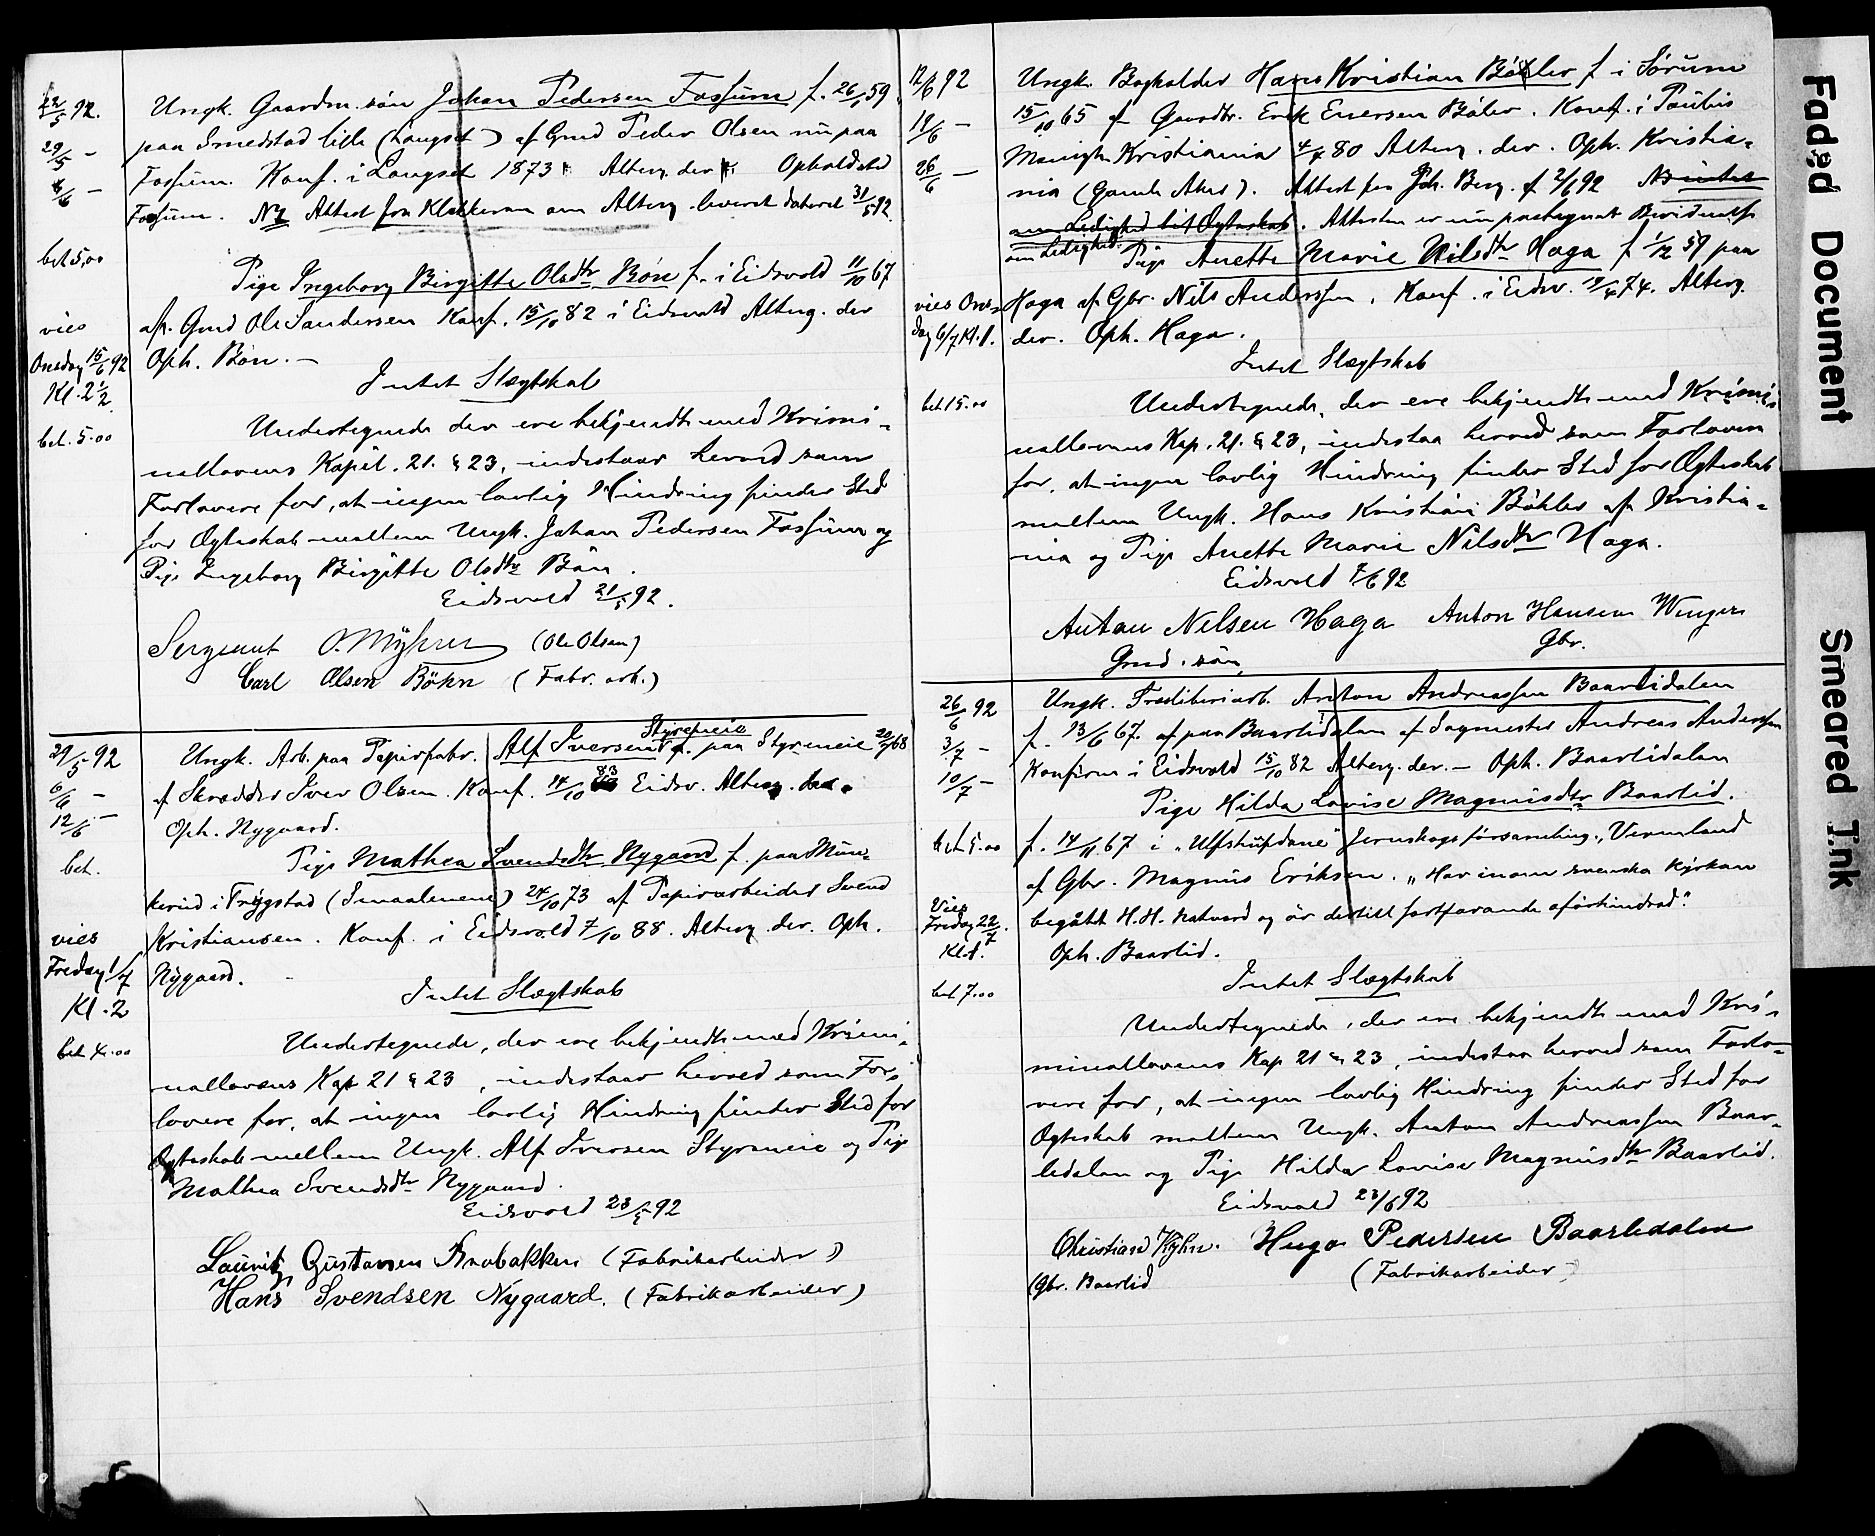 22/5 92.
29/5 —
6/6 —
bet 5,00
vies
Onsdag 15/6 92
Kl. 2 1/2
bet. 5.00
Ungk. Gaardm. søn Johan Pedersen Fossum f. 26/1 59
paa Smedstad lille (Langset) af Gmd Peder Olsen nu paa
Fossum. Konf. i Langset 1873. Alterg. der. Opholdsted
Fossum. NB Attest fra Klokkeren om Alterg. leveret dateret 31/5 92
Pige Ingeborg Birgitte Olsdtr Bøn f. i Eidsvold 11/10 67
af Gmd Ole Sandersen Konf. 15/10 82 i Eidsvold Alterg. der
Oph. Bøn. —
Intet Slægtskab
Undertegnede der ere bekjendte med Krimi-
nallovens Kapit. 21. § 23, indestaar herved som
Forlovere for, at ingen lovlig Hindring finder Sted
for Ægteskab mellem Ungk. Johan Pedersen Fossum og
Pige Ingeborg Birgitte Olsdtr Bøn.
Eidsvold 21/5 92.
Sergeant O. Myhrer (Ole Olsen)
Carl Olsen Böhn (Fabr. arb.)
29/5 92
6/6 —
12/6 —
bet.
vies
Fredag 1/7
Kl. 2
bet 4.00
Styremeie
Ungk. Arb. paa Papirfabr. Alf Iversen f. paa Styremeie 20/7 68
af Skrædder Iver Olsen. Konf. 14/10 83 Eidsv. Alterg. der.
Oph. Nygaard.
Pige Mathea Svendsdtr Nygaard f. paa Mün-
kerud i Trygstad (Smaalenene) 24/10 73 af Papirarbeider Svend
Kristiansen. Konf. i Eidsvold 7/10 88. Alterg. der. Oph.
Nygaard.
Intet Slægtskab
Undertegnede, der ere bekjendte med Krimi-
nallovens Kap 21 § 23, indestaar herved som For-
lovere for, at ingen lovlig Hindring finder Sted for
Ægteskab mellem Ungk. Alf Iversen Styremeie og Pige
Mathea Svendsdtr Nygaard.
Eidsvold 23/5 92
Lauritz Gustavsen (Fabrikarbeider)
Hans Svendsen Nygaard. (Fabrikarbeider)
12/6 92
19/6 —
26/6 —
vies Ons-
dag 6/7 Kl. 1.
bet 15.00
Ungk. Bogholder Hans Kristian Bøhler f i Sørum
15/10 65 af Gaardbr. Erik Enersen Bøler. Konf. i Paulus
Menigh. Kristiania 4/4 80 Alterg. der. Oph. Kristia-
nia (Gamle Aker). Attest fra Joh. Berg. af 2/6 92 NB intet
om Ledighed til Ægteskab. Attesten er nu paategnet Bevidnelse
om Ledighed.
Pige Anette Marie Nilsdtr Haga f 1/12 59 paa
Haga af Gbr. Nils Anderssen, Konf. i Eidsv. 19/4 74. Alterg.
der. Oph. Haga.
Intet Slægtskab
Undertegnede, der ere bekjendte med Krimi-
nallovens Kap. 21. § 23, indestaa herved som Forlovere
for, at ingen lovlig Hindring finder Sted for Ægteskab
mellem Ungk. Hans Kristian Bøhler af Kristia-
nia og Pige Anette Marie Nilsdtr Haga.
Eidsvold 7/6 92
Anton Nilsen Haga Anton Hansen Wenger
Gmd. søn, Gbr.
26/6 92
3/7 —
10/7 —
bet 5.00
Vies
Fredag 22/7.
Kl. 1.
bet 7.00
Ungk. Træsliberiarb. Anton Andreassen Baarlidalen
f. 13/6 67. af paa Baarlidalen af Sagmester Andreas Anderssen
Konfirm i Eidsvold 15/10 82 Alterg. der. — Oph. Baarlidalen
Pige Hilda Lovise Magnusdtr Baarlid.
f. 14/11 67 i „Ulfstufdane" Jernskogs församling, Vermland
af Gbr. Magnus Eriksen. „Har inom svenska kyrkan
begått H. H. Nattvard og är dertill fortfarande oförhindrad."
Oph. Baarlid.
Intet Slægtskab
Undertegnede, der ere bekjendte med Kri-
minallovens Kap 21 § 23, indestaa herved som Forlo-
vere for, at ingen lovlig Hindring finder Sted for
Ægteskab mellem Ungk. Anton Andreassen Baar-
lidalen og Pige Hilda Lovise Magnusdtr Baarlid.
Eidsvold 23/6 92
Christian Kyhn. Hugo Pedersen Baarlidalen
Gbr. Baarlid (Fabrikarbeider)
Faded Document
Smeared Ink